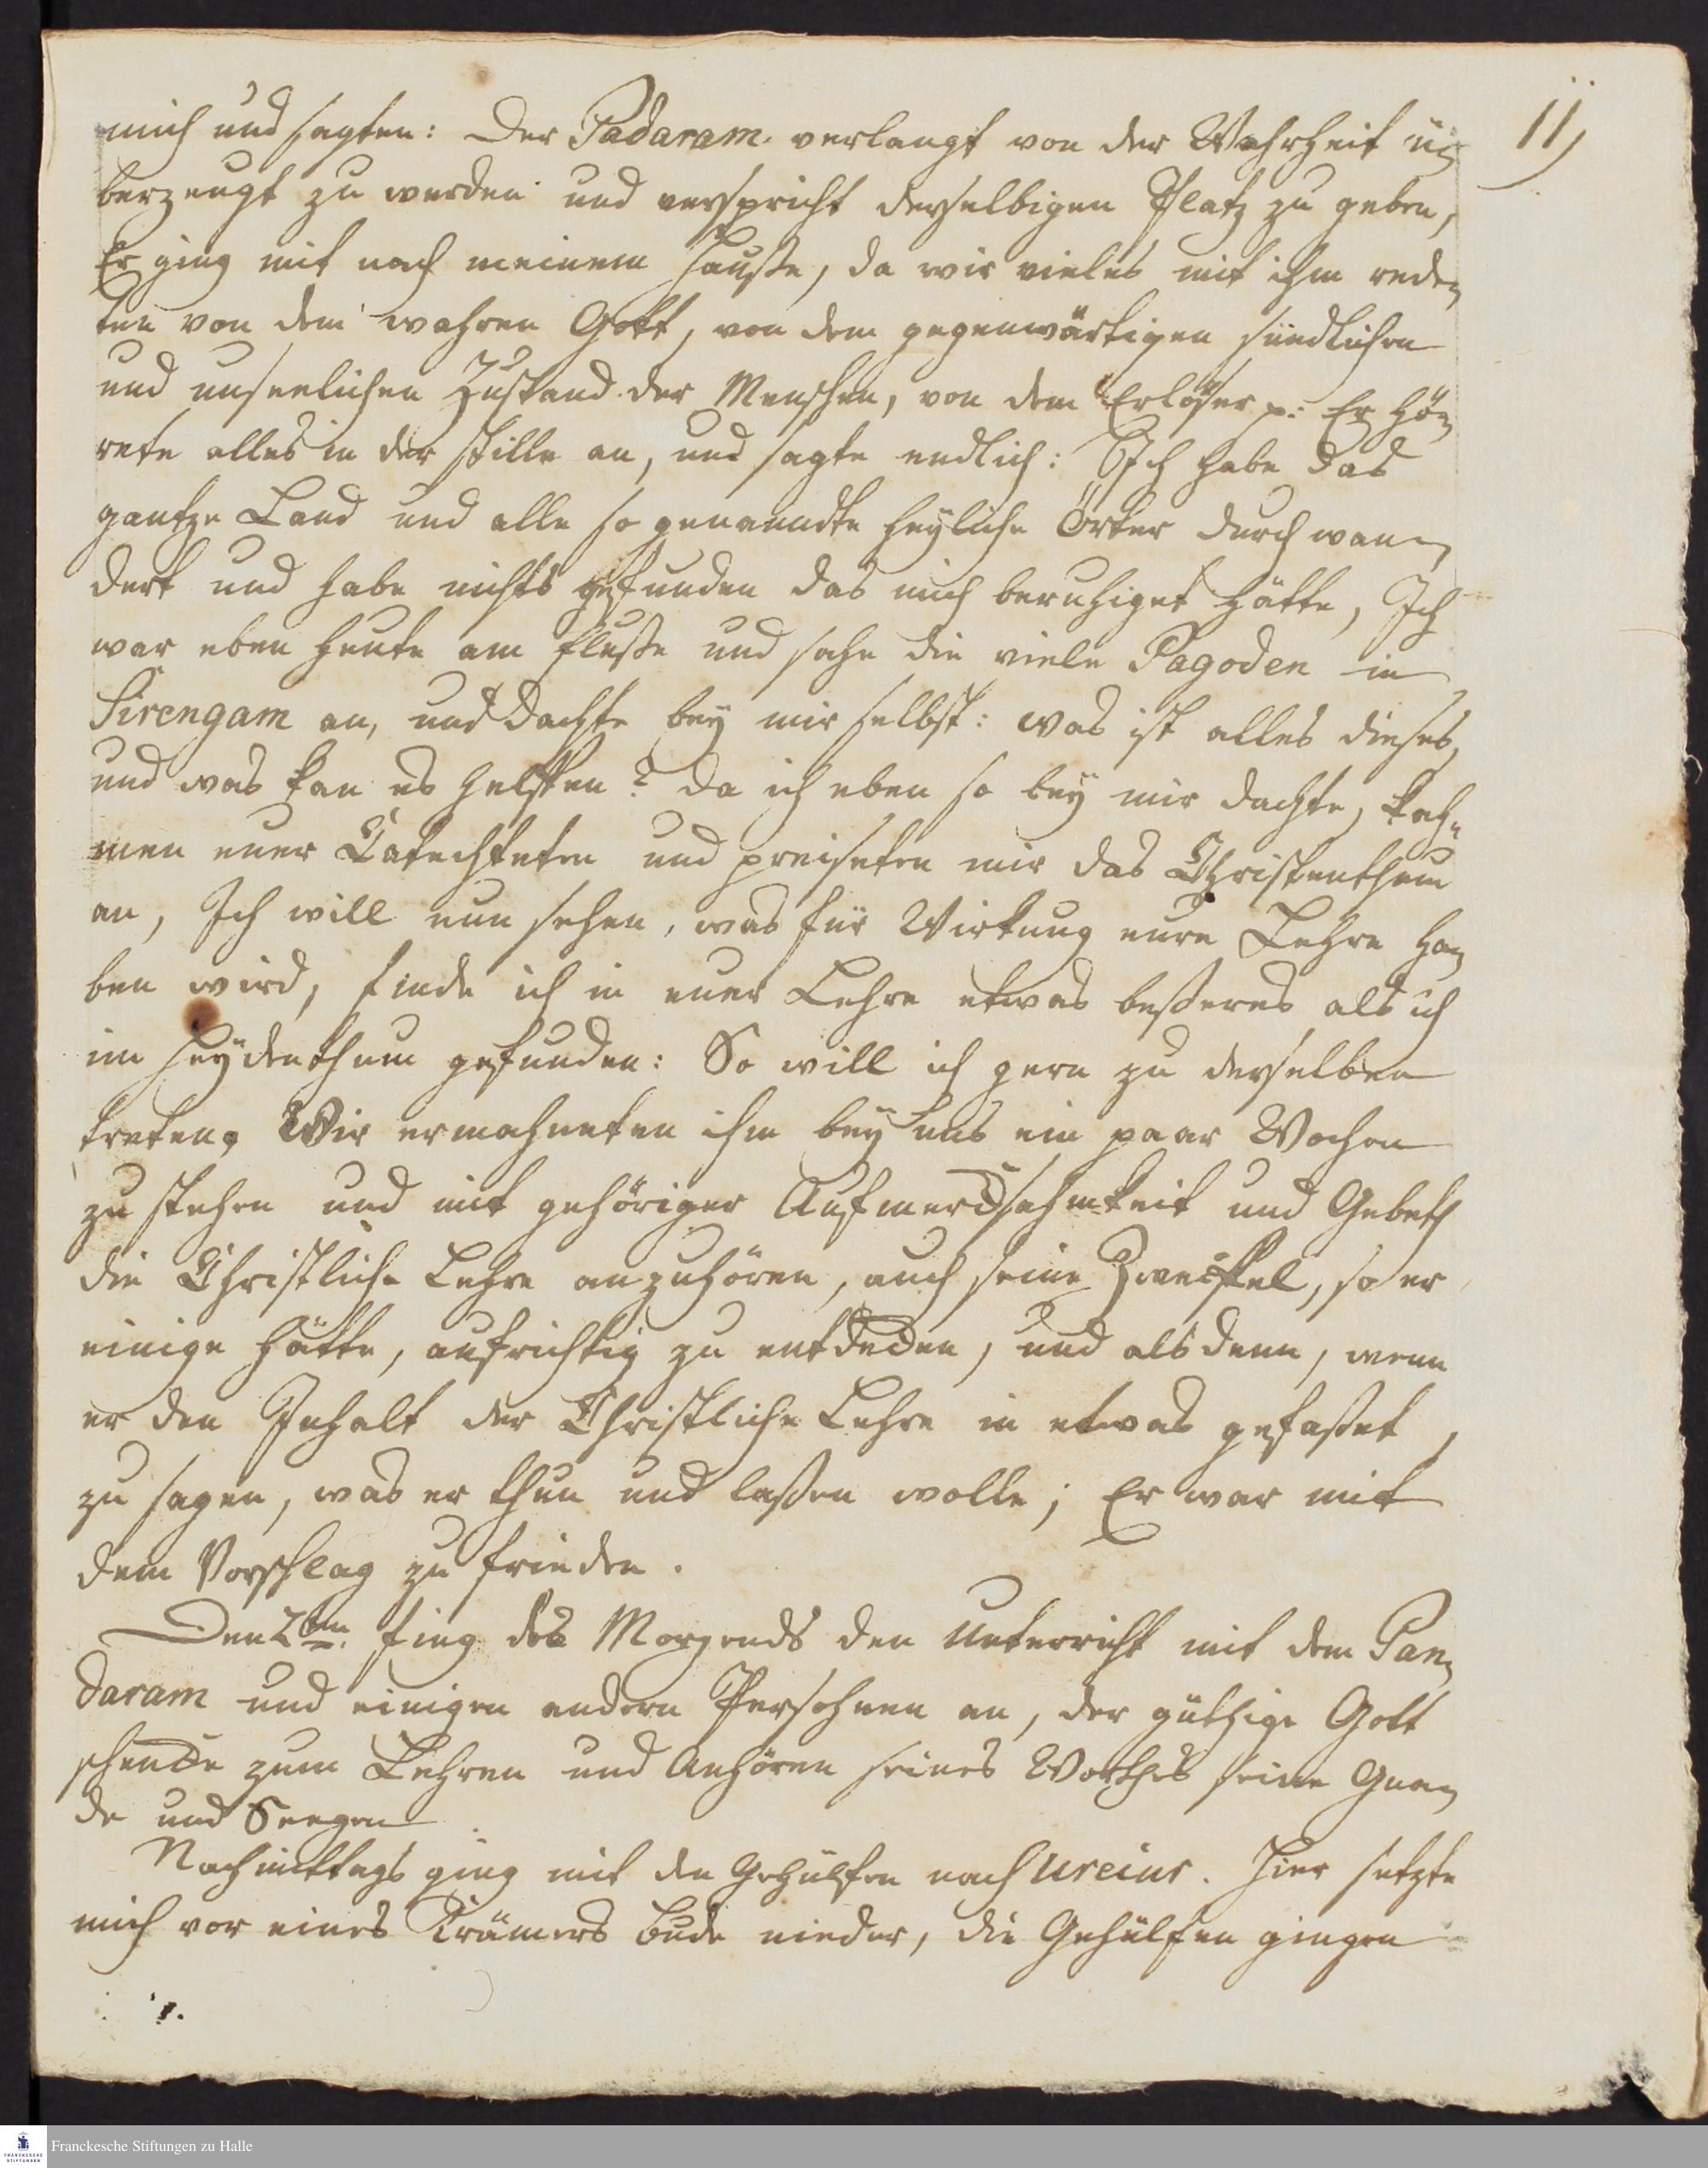 11,
mich und sagten: Der Padaram verlangt von der Wahrheit ü-
berzeugt zu werden und verspricht derselbigen Platz zu geben,
Er ging mit nach meinem Hauße, da wir vieles mit ihm rede-
ten von dem wahren Gott, von dem gegenwärtigen sündlichen
und unseelichen Zustand der Menschen, von dem Erlöser p: Er hö-
rete alles in der stille an, und sagte endlich: Ich habe das
gantze Land und alle so genandte heyliche Örter durch wan-
dert und habe nichts gefunden das mich beruhiget hätte, Ich
war eben heute am Fluße und sahe die viele Pagoden in
Sirengam an, und dachte bey mir selbst: was ist alles dieses,
und was kan es helffen? da ich eben so bey mir dachte, kah-
men euer Catechteten und preiseten mir das Christenthum
an, Ich will nun sehen, was für Wirkung eure Lehre ha-
ben wird, finde ich in euer Lehre etwas beßeres als ich
im Heydenthum gefunden: So will ich gern zu derselben
treten, Wir ermahneten ihm bey uns ein paar Wochen
zu stehen und mit gehöriger Aufmercksahmkeit und Gebeth
die Christliche Lehre anzuhören, auch seine Zweiffel, so er
einige hätte, aufrichtig zu entdecken, und als denn, wenn
er den Inhalt der Christliche Lehre in etwas gefaßet,
zu sagen, was er thun und laßen wolle; Er war mit
dem Vorschlag zu frieden.
Den 2ten. fing des Morgends den Unterricht mit dem Pan-
daram und einigen andern Persohnen an, der güthige Gott
schencke zum Lehren und Anhören seines Worthes seine Gna-
de und Seegen
Nachmittags ging mit den Gehülfen nach Ureiur. Hier setzte
mich vor eines Krämers Bude nieder, die Gehülfen gingen
Franckesche Stiftungen zu Halle